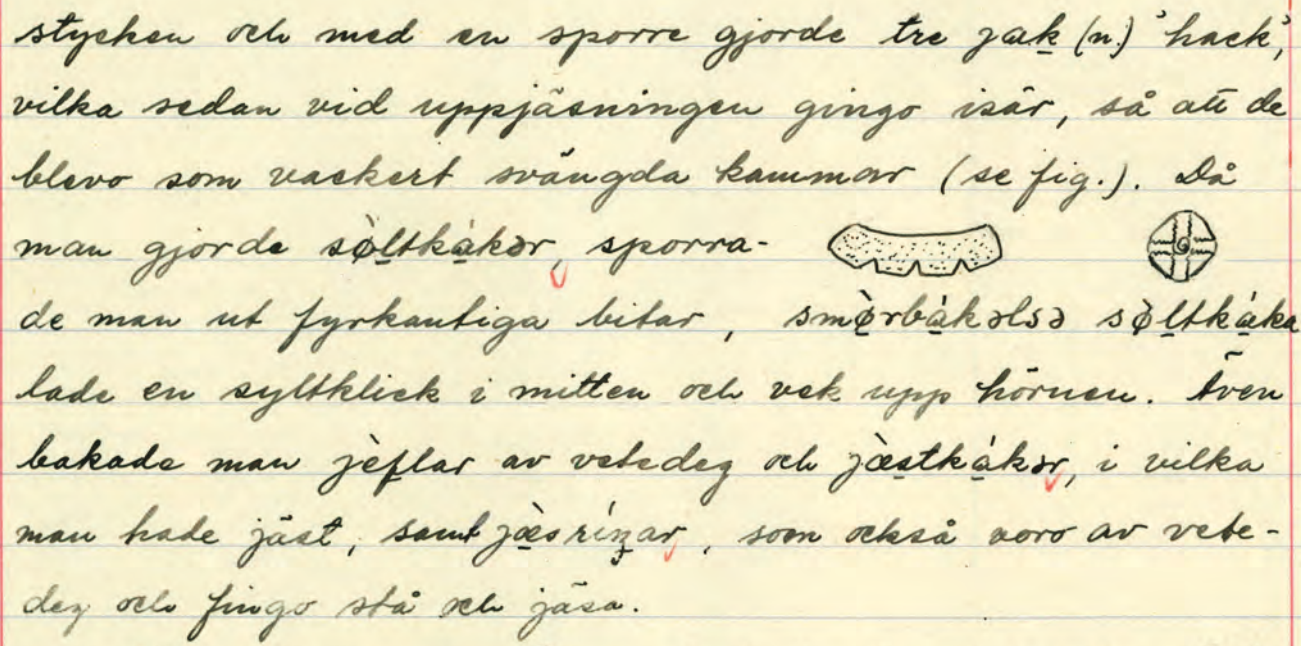 stycken och med en sporre gjorde tre jak (n.) 'hack',
vilka sedan vid uppjäsningen gingo isär, så att de
blevo som vackert svängda kammar (se fig.). Då
man gjorde sø̀ltkákər, sporra-
de man ut fyrkantiga bitar, smø̀rbákəlsə sø̀ltkáka
lade en syltklick i mitten och vek upp hörnen. Även
bakade man jèflar av vetedeg och jæ̀stkákər, i vilka
man hade jäst, samt jæ̀sríŋar, som också voro av vete-
deg och fingo stå och jäsa.